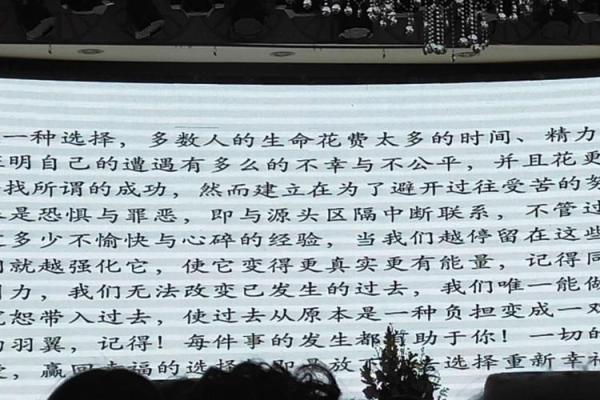 一种选择，多数人的生命花费太多的时间、精力
证明自己的遭遇有多么的不幸与不公平，并且花更
找所谓的成功，然而建立在为了避开过往受苦的努
是恐惧与罪恶，即与源头区隔中断联系，不管过
多少不愉快与心碎的经验，当我们越停留在这些
们就越强化它，使它变得更真实更有能量，记得同
力，我们无法改变已发生的过去，我们唯一能做
宽恕带入过去，使过去从原本是一种负担变成一双
的羽翼，记得！每件事的发生都有助于你！一切的
赢回幸福的选择 即是放下 选择重新幸福